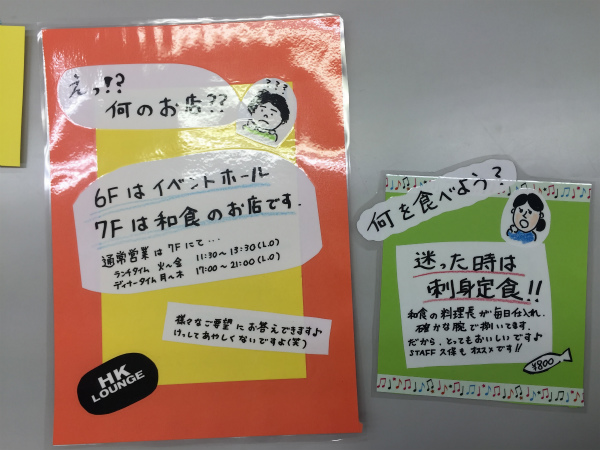 えっ!?
何のお店??
???
6Fはイベントホール
7Fは和食のお店です.
通常営業は7Fにて...
ランチタイム 火〜金 11:30〜13:30(L.O)
ディナータイム 月〜木 17:00〜21:00(L.O)
様々なご要望にお答えできます♪
けっしてあやしくないですよ(笑)
HK
LOUNGE
何を食べよう?
迷った時は
刺身定食!!
和食の料理長が毎日仕入れ、
確かな腕で捌いてます。
だから、とってもおいしいです♪
STAFF 久保もオススメです!!
¥800